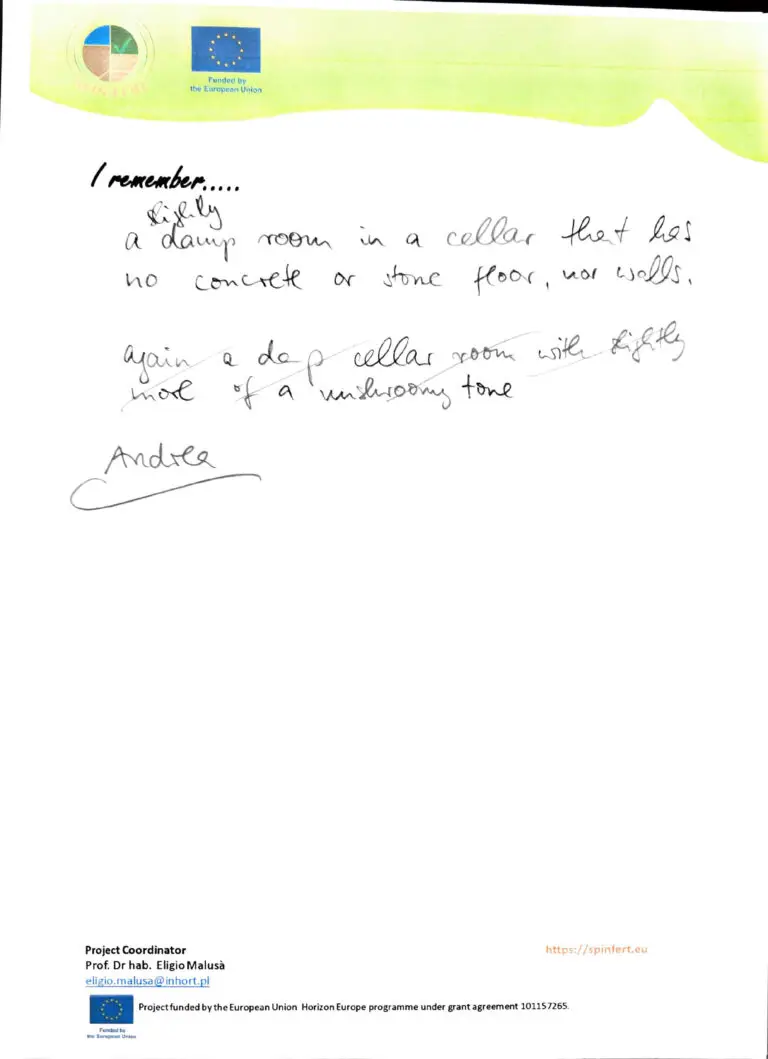 Funded by
the European Union
I remember.....
slightly
a damp room in a cellar that has
no concrete or stone floor, nor walls.
again a dap cellar room with slightly
more of a mushroomy tone
Andrea
Project Coordinator
Prof. Dr hab. Eligio Malusà
eligio.malusa@inhort.pl
https://spinfert.eu
Project funded by the European Union Horizon Europe programme under grant agreement 101157265.
Funded by
the European Union